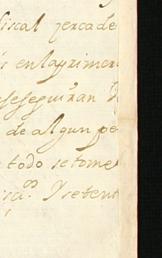 fiscal yercade
en la primer
seseguiran
de algun pe
todo se tome
Y se tent